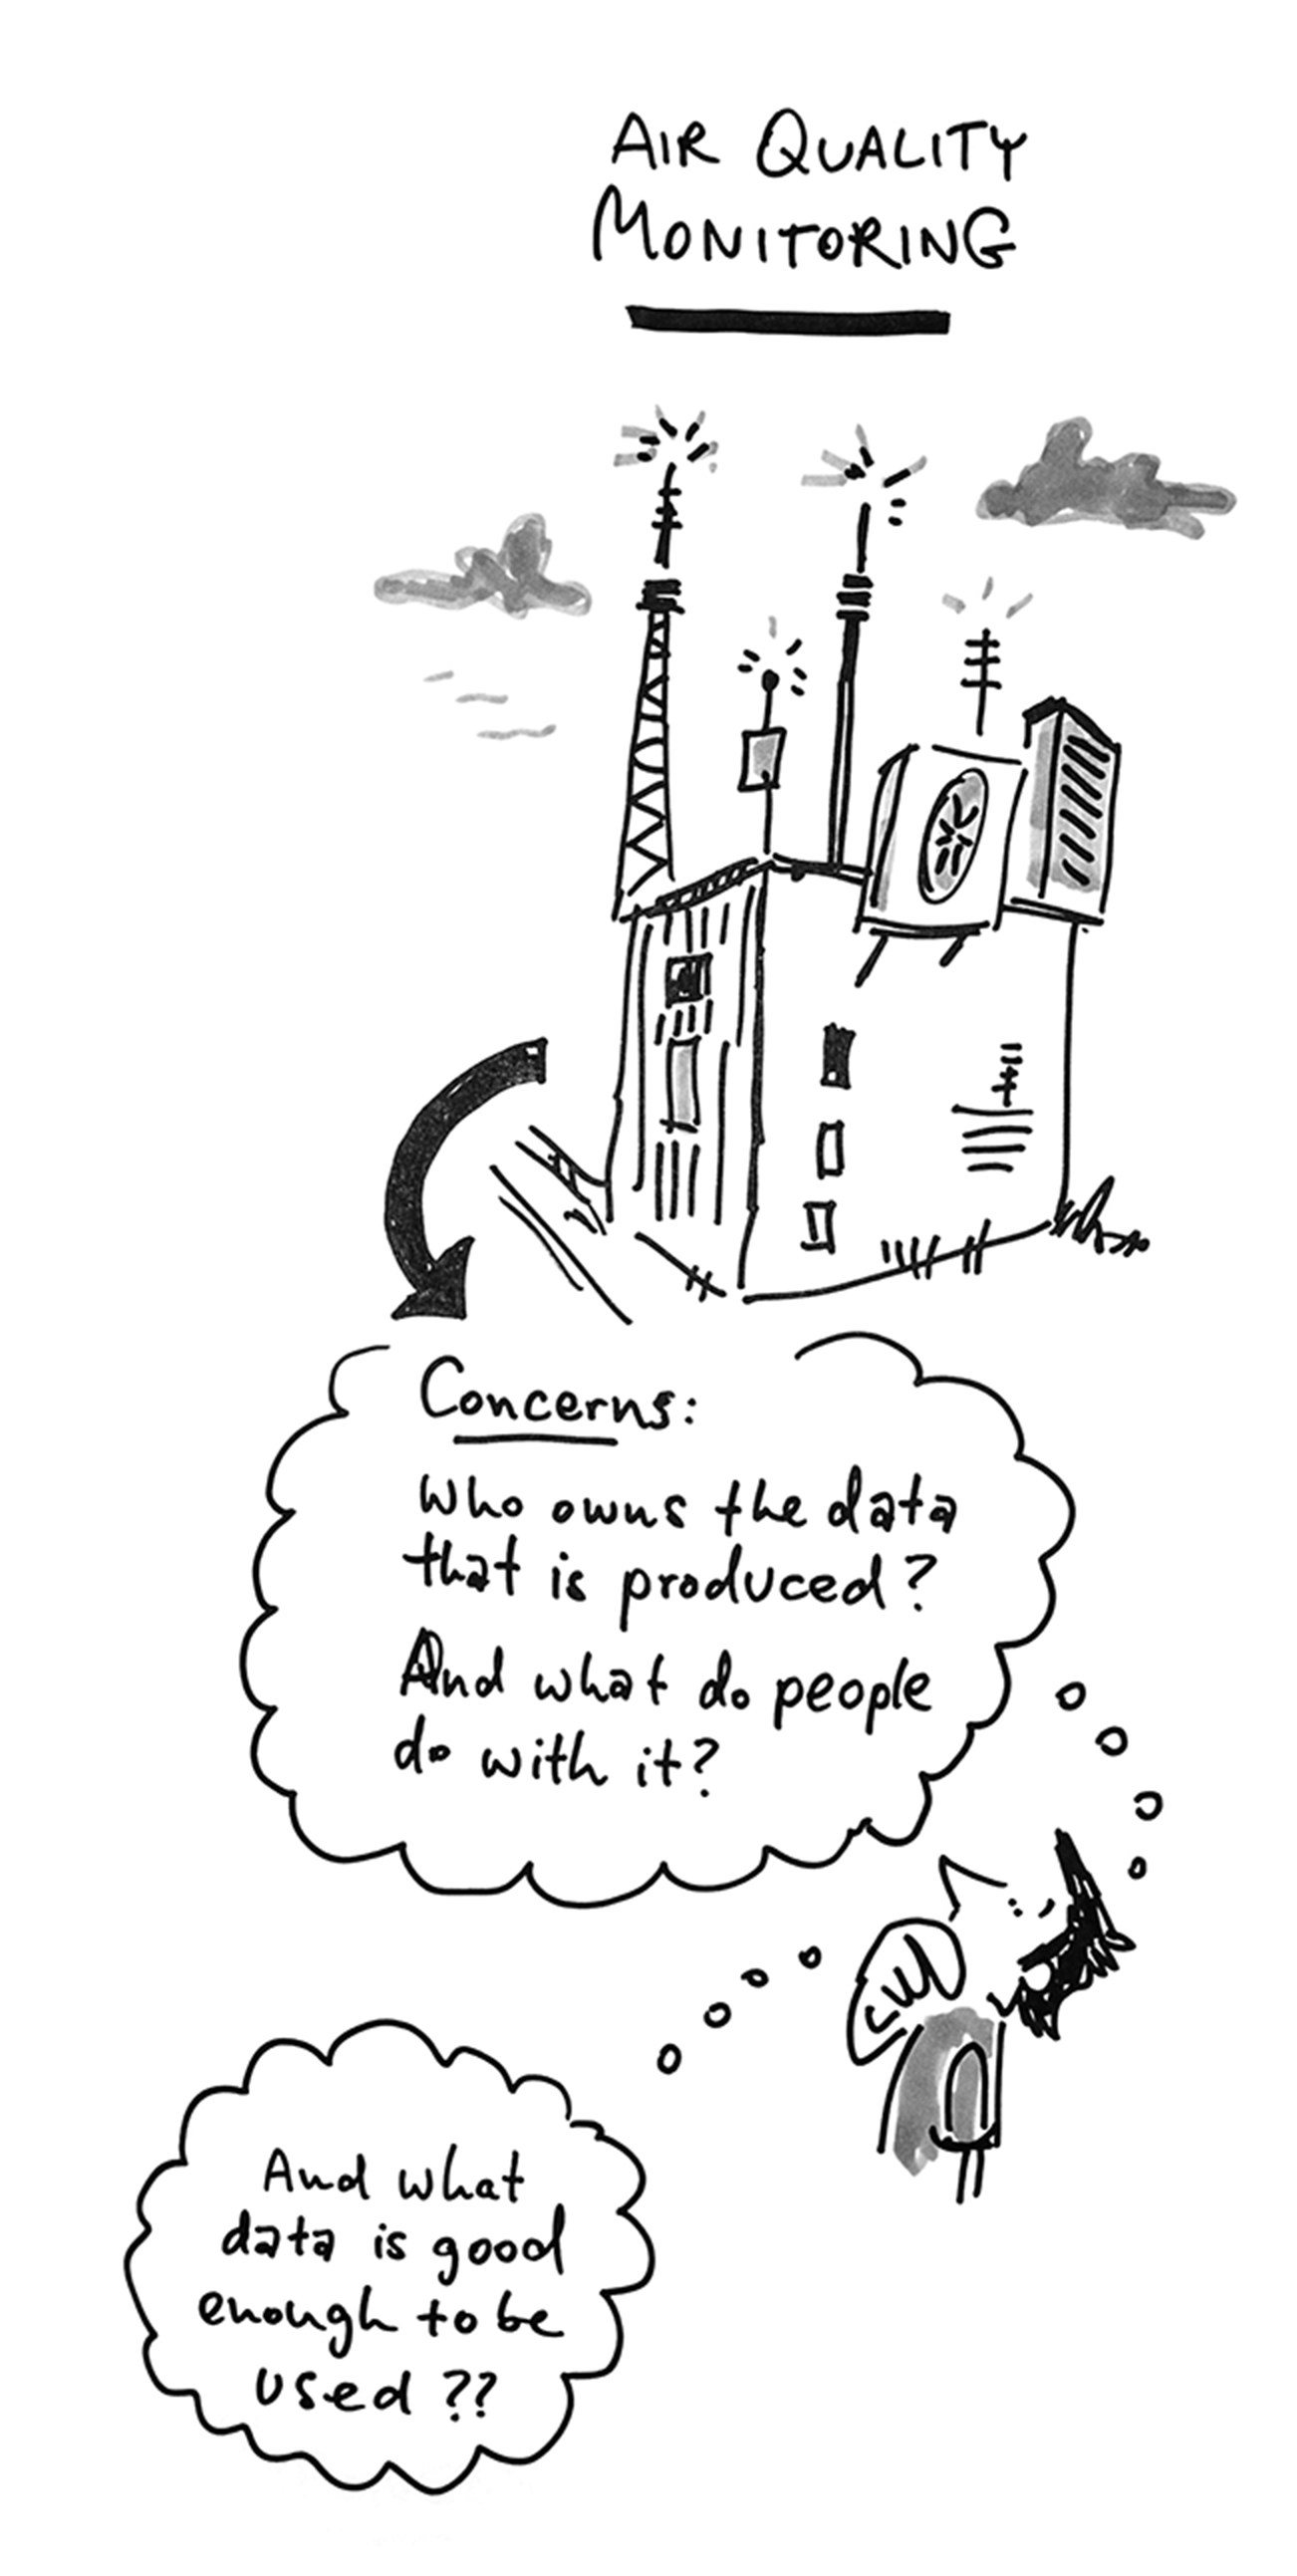 AIR QUALITY
MONITORING
Concerns:
Who owns the data
that is produced?
And what do people
do with it?
And what
data is good
enough to be
used ??